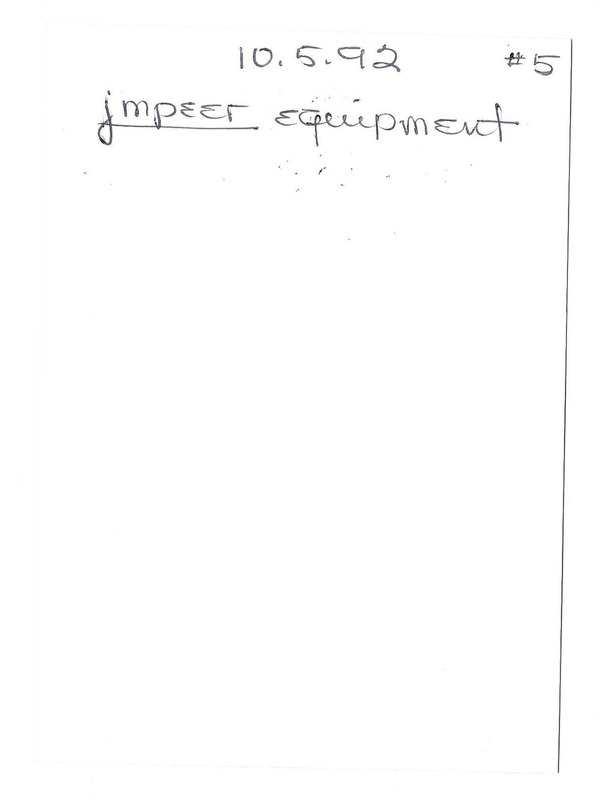 10.5.92 #5
jmpeer equipment